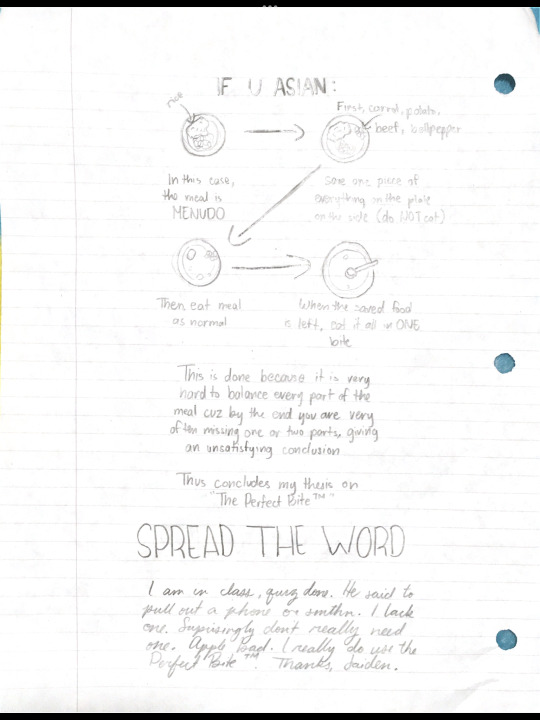 IF U ASIAN:
rice
First, carrot, potato,
beef, bellpepper
In this case,
the meal is
MENUDO
Save one piece of
everything on the plate
on the side (do NOT eat)
Then, eat meal
as normal
When the saved food
is left, eat it all in ONE
bite
This is done because it is very
hard to balance every part of the
meal cuz by the end you are very
often missing one or two parts, giving
an unsatisfying conclusion
Thus concludes my thesis on
"The Perfect Bite™"
SPREAD THE WORD
I am in class, quiz done. He said to
pull out a phone or smthn. I lack
one. Supisingly dont really need
one. Apple Bad. I really do use the
Perfect Bite™. Thanks, Jaiden.